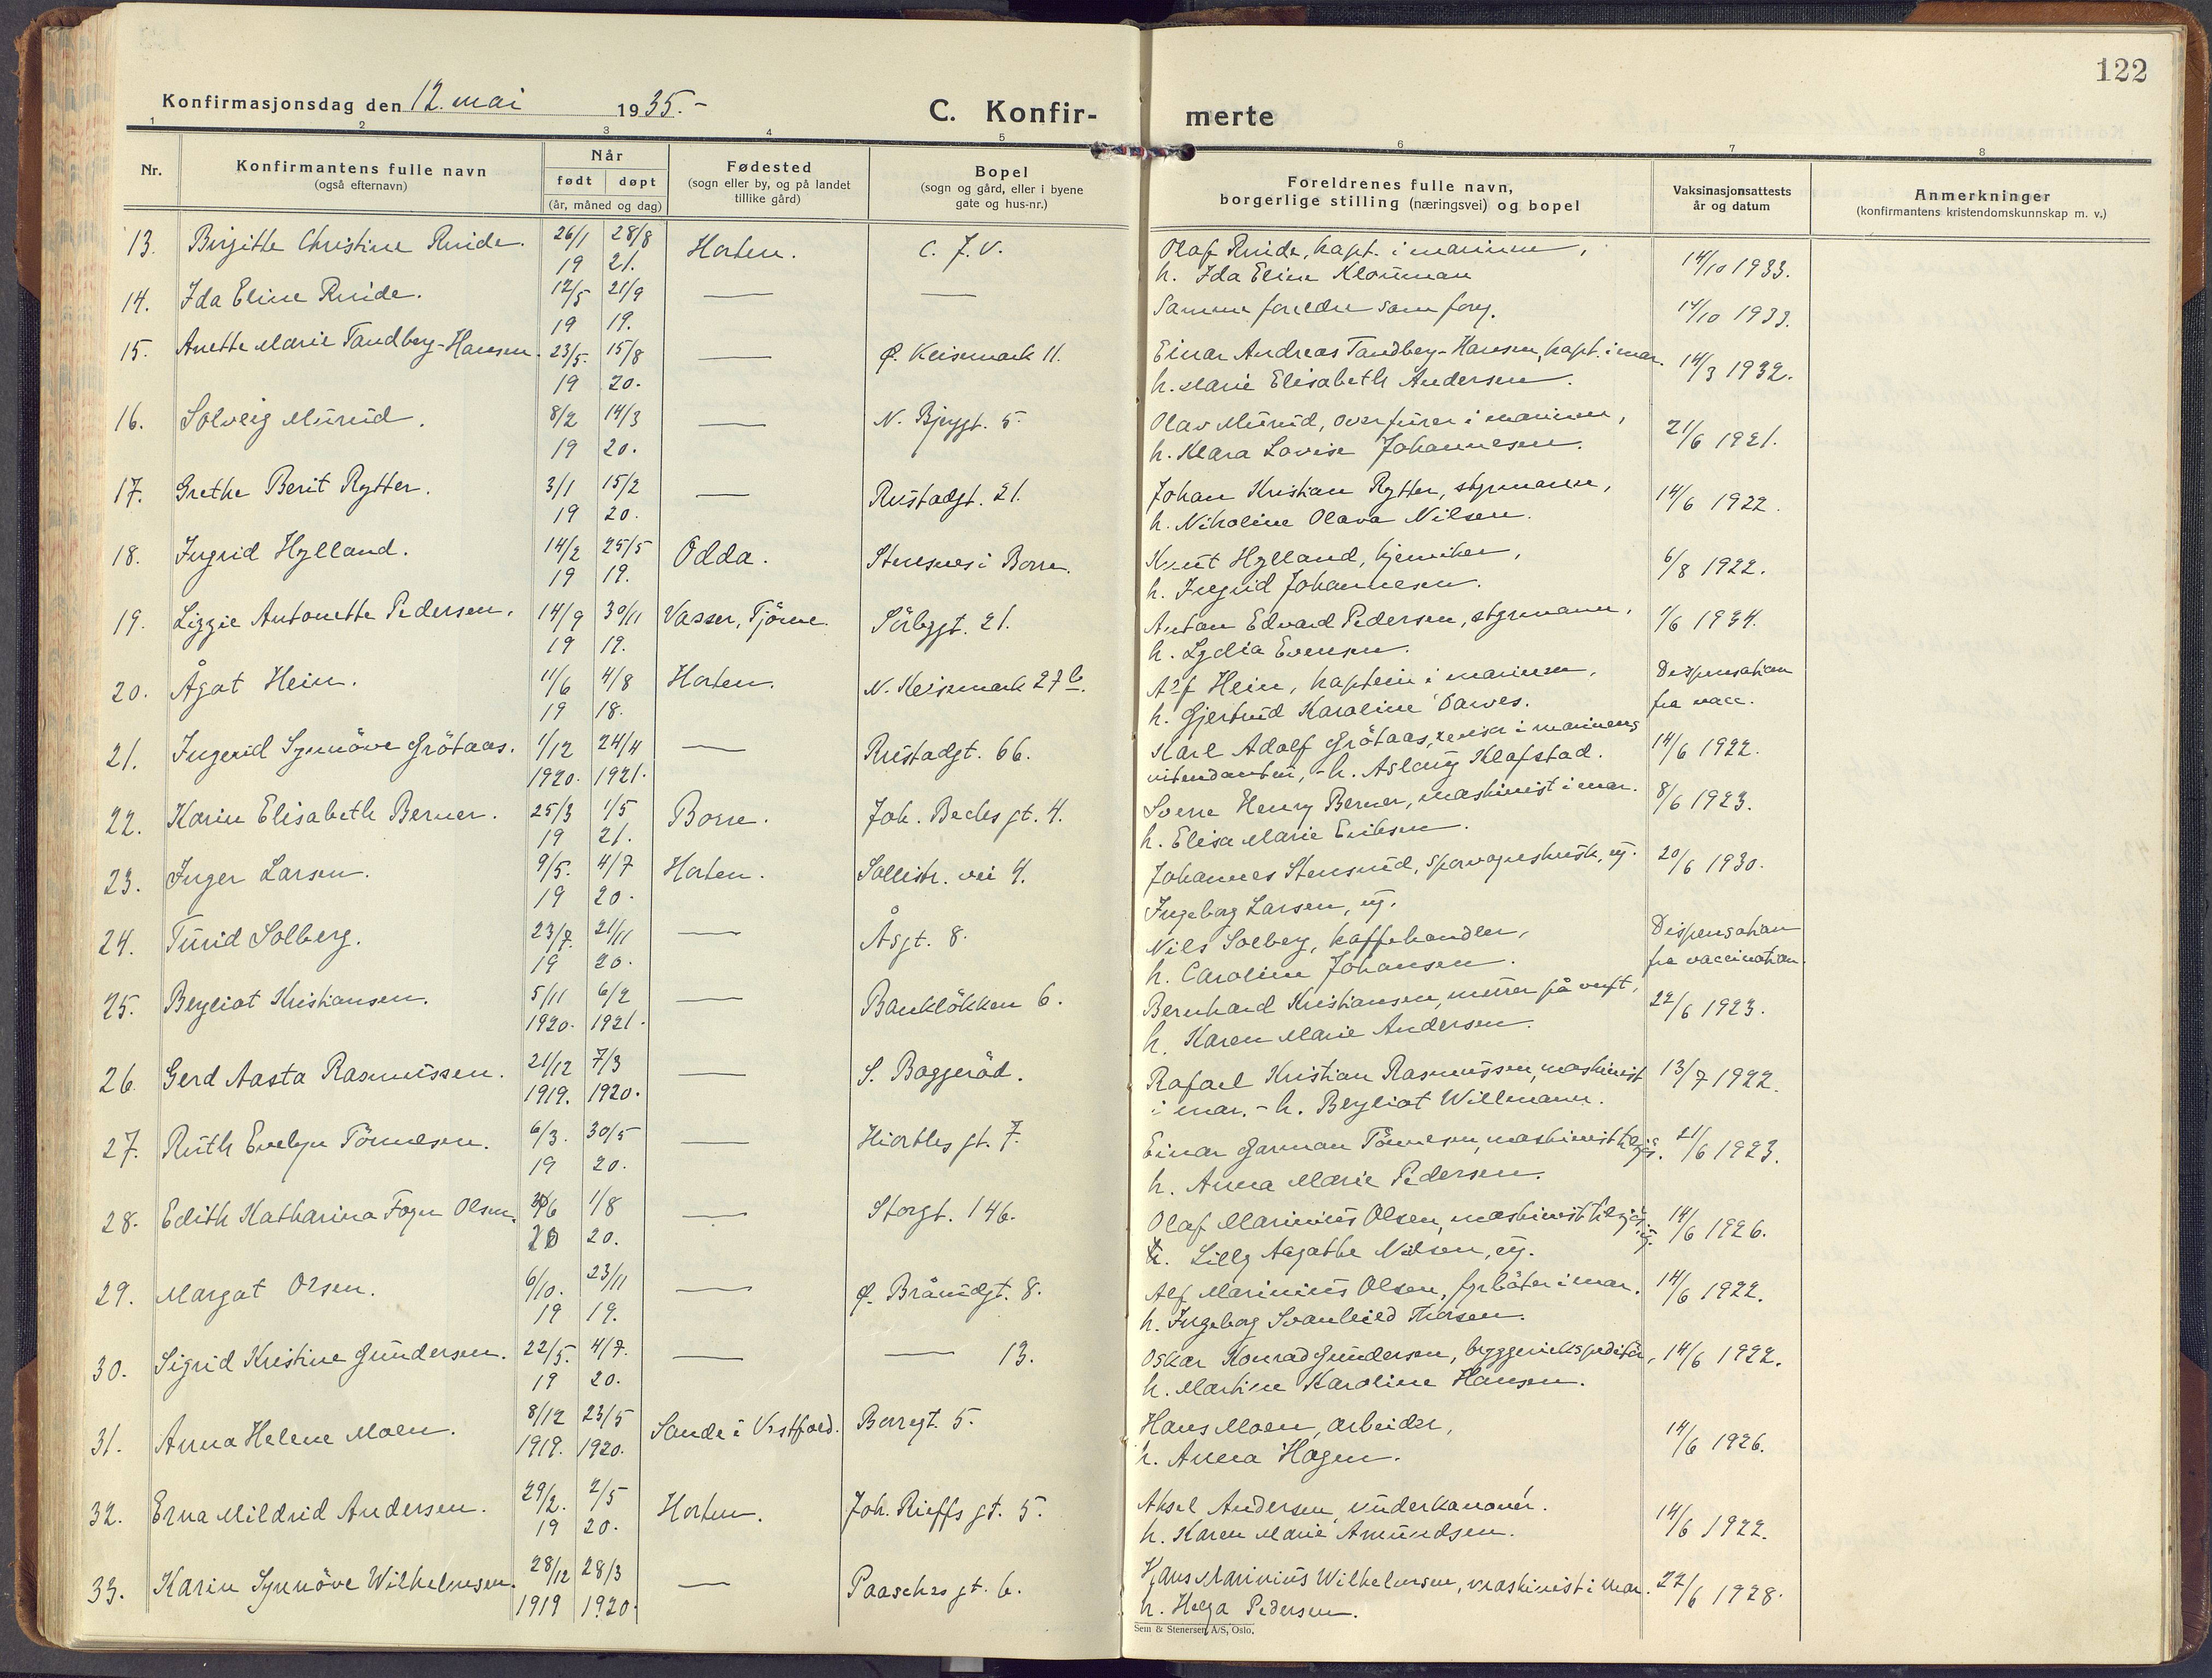 122
Konfirmasjonsdag den 12. mai 1935.-
C. Konfir- merte
1 2 3 4 5 6 7 8
Nr.
Konfirmantens fulle navn
(også efternavn)
Når
født døpt
(år, måned og dag)
Fødested
(sogn eller by, og på landet
tillike gård)
Bopel
(sogn og gård, eller i byene
gate og hus-nr.)
Foreldrenes fulle navn,
borgerlige stilling (næringsvei) og bopel
Vaksinasjonsattests
år og datum
Anmerkninger
(konfirmantens kristendomskunnskap m. v.)
13. Birgitte Christine Ruide. 26/1 28/8 Horten. C. J. V. Olaf Ruide, kapt. i marinen, 14/10 1933.
19 21. h. Ida Eline Klouman
14. Ida Eline Ruide. 12/5 21/9 — — Samme foreldre som forg. 14/10 1933.
19 19.
15. Anette Marie Tandberg-Hansen. 23/5. 15/8 — Ø. Keisemark 11. Einar Andreas Tandberg-Hansen, kapt. i mar. 14/3 1932.
19 20. h. Marie Elisabeth Andersen.
16. Solveig Murud. 8/2 14/3 — N. Bjergt. 5. Olav Murud, overfurer i marinen, 21/6 1921.
19 20. h. Klara Lovise Johannesen.
17. Grethe Berit Rytter. 3/1 15/2 — Rustadgt. 21. Johan Kristian Rytter, styrmann, 14/6 1922.
19 20. h. Nikoline Olava Nilsen.
18. Ingrid Hylland. 14/2 25/5 Odda. Stensnes i Borre. Knut Hylland, kjemiker, 6/8 1922.
19 19. h. Ingrid Johannesen.
19. Lizzie Antonette Pedersen. 14/9 30/11 Vasser, Tjöme. Sörbygt. 21. Anton Edvard Pedersen, styrmann, 1/6 1934.
19 19. h. Lydia Evensen.
20. Ågot Hein. 11/6 4/8 Horten. N. Keisemark 27 b. Alf Hein, kaptein i marinen, Dispensation
19 18. h. Gjertrud Karoline Darves. fra vacc.
21. Ingerid Synnöve Grötaas. 1/12 24/4 — Rustadgt. 66. Karl Adolf Grötaas, revisor i marinens 14/6 1922.
1920. 1921. intendantur, - h. Aslaug Klafstad.
22. Karin Elisabeth Berner. 25/3 1/5 Borre. Joh. Bechs gt. 4. Sverre Henry Berner, maskinist i mar. 8/6 1923.
19 21. h. Elisa Marie Eriksen.
23. Inger Larsen. 9/5. 4/7 Horten. Sollistr. vei 4. Johannes Stensrud, sporvognskusk, ug. 20/6 1930.
19 20. Ingeborg Larsen, ug.
24. Turid Solberg. 23/7. 21/11 — Åsgt. 8. Nils Solberg, kaffehandler, Dispensation
19 20. h. Caroline Johansen. fra vaccination.
25. Bergliot Kristiansen. 5/11 6/2 — Banklökken 6. Bernhard Kristiansen, murer på verft, 22/6 1923.
1920. 1921. h. Karen Marie Andersen.
26. Gerd Aasta Rasmussen. 21/12 7/3 — S. Baggeröd. Rafael Kristian Rasmussen, maskinist 13/7 1922.
1919. 1920. i mar. - h. Bergliot Willmann.
27. Ruth Evelyn Tönnesen. 6/3. 30/5 — Hiorthes gt. 7. Einar Garman Tönnesen, maskinist tilsjös. 21/6 1923.
19 20. h. Anna Marie Pedersen.
28. Edith Katharina Foyn Olsen. 1/8 — Storgt. 146. Olaf Marinius Olsen, maskinist tilsjös, ug. 14/6 1926.
20 20. Lilly Aagathe Nilsen, ug.
29. Margot Olsen. 6/10. 23/11 — Ø. Bråudgt. 8. Alf Marinius Olsen, fyrböter i mar. 14/6 1922.
19 19. h. Ingeborg Svanhild Thorsen.
30. Sigrid Kristine Gundersen. 22/5. 4/7. — — 13. Oskar Konrad Gundersen, bryggeriekspeditör, 14/6 1922.
19 20. h. Martine Karoline Hansen.
31. Anna Helene Moen. 8/12 23/5 Sande i Vestfold. Borregt. 5. Hans Moen, arbeider, 14/6 1926.
1919. 1920. h. Anna Hagen.
32. Erna Mildrid Andersen. 29/2. 2/5 Horten. Joh. Rieffs gt. 5. Aksel Andersen, underkanonér. 14/6 1922.
19 20. h. Karen Marie Amundsen.
33. Karin Synnöve Wilhelmsen. 28/12 28/3 — Paasches gt. 6. Hans Marinius Wilhelmsen, maskinist i mar. 22/6 1928.
1919 1920. h. Helga Pedersen.
Sem & Stenersen A/S, Oslo.